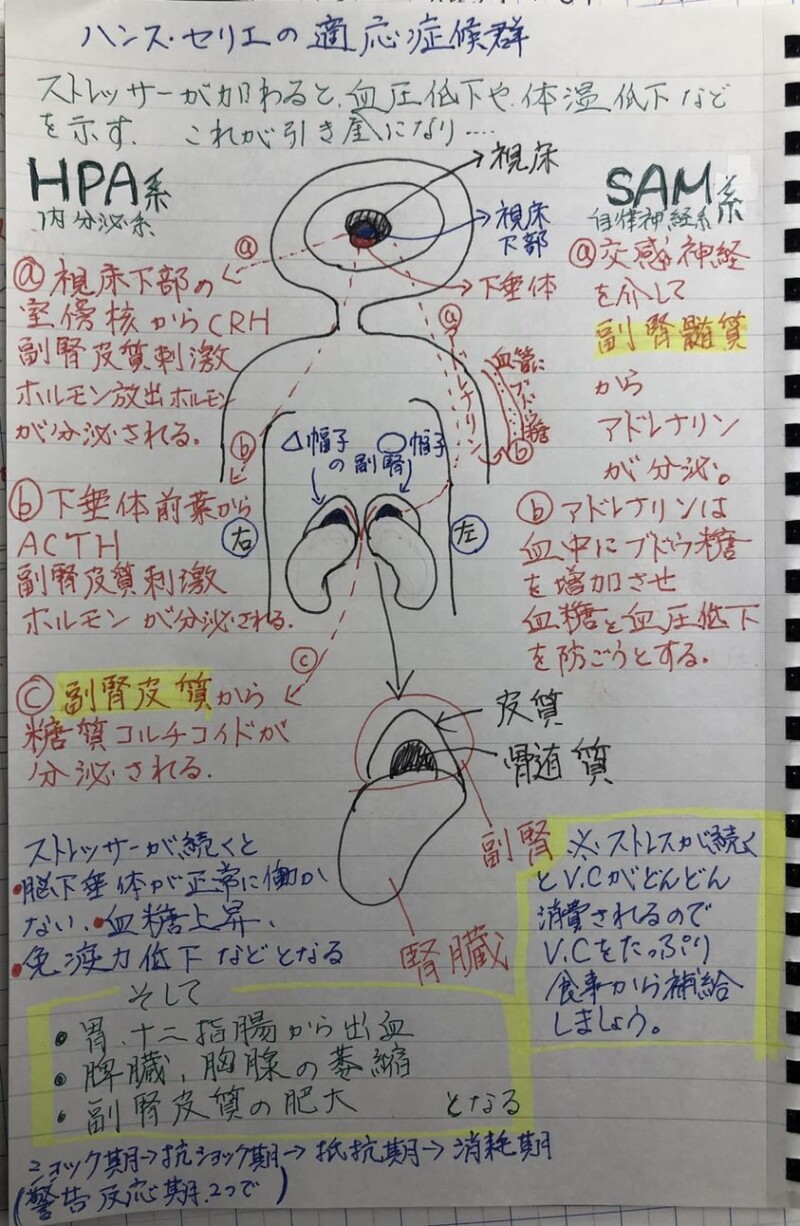 ハンス・セリエの適応症候群
ストレッサーが加わると、血圧低下や、体温低下など
を示す. これが引き金になり....
HPA系
内分泌系
ⓐ視床下部の
室傍核からCRH
副腎皮質刺激
ホルモン放出ホルモン
が分泌される.
ⓑ下垂体前葉から
ACTH
副腎皮質刺激
ホルモンが分泌される.
ⓒ副腎皮質から
糖質コルチコイドが
分泌される.
視床
視床
下部
下垂体
ⓐ
ⓐ
アドレナリン
血管に
ブドウ糖
ⓑ
ⓑ
△帽子 ○帽子
の副腎
右
左
ⓒ
皮質
髄質
副腎
腎臓
SAM系
自律神経系
ⓐ交感神経
を介して
副腎髄質
から
アドレナリン
が分泌。
ⓑアドレナリンは
血中にブドウ糖
を増加させ
血糖と血圧低下
を防ごうとする.
ストレッサーが続くと
・脳下垂体が正常に働か
ない、・血糖上昇、
・免疫力低下などとなる
そして
・胃、十二指腸から出血
・脾臓、胸腺の萎縮
・副腎皮質の肥大 となる
※ストレスが続く
とV.Cがどんどん
消費されるので
V.Cをたっぷり
食事から補給
しましょう。
ショック期→抗ショック期→抵抗期→消耗期
(警告反応期.2つで)